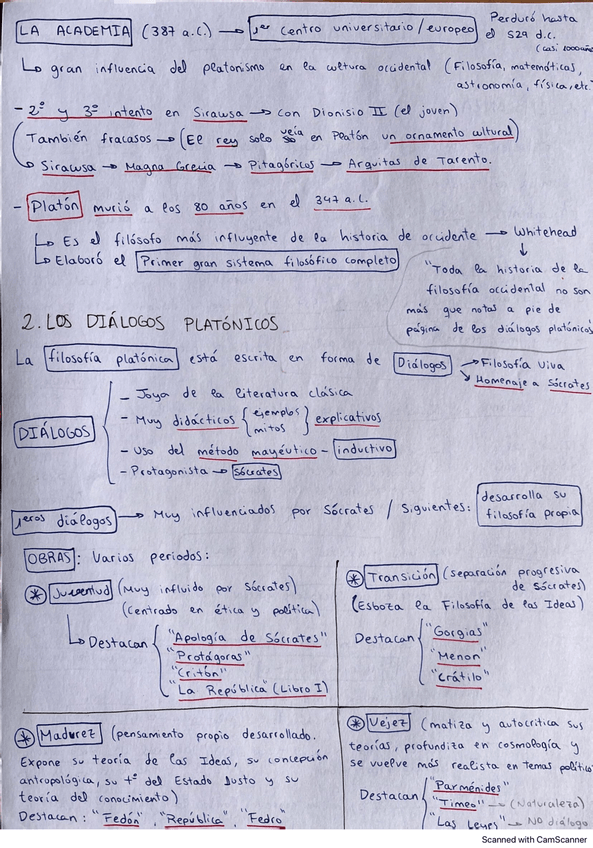 LA ACADEMIA (387 a.C.) → 1er centro universitario/europeo Perduró hasta
el 529 d.c.
(casi 1000 años
↳ gran influencia del platonismo en la cultura occidental (Filosofía, matemáticas,
astronomía, física, etc.
- 2º y 3º intento en Siracusa → con Dionisio II (el joven)
También fracasos → (El rey solo veía en Platón un ornamento cultural)
↳ Siracusa → Magna Grecia → Pitagóricos → Arquitas de Tarento.
- Platón murió a los 80 años en el 347 a.C.
↳ Es el filósofo más influyente de la historia de occidente → Whitehead
↳ Elaboró el Primer gran sistema filosófico completo
"Toda la historia de la
filosofía occidental no son
más que notas a pie de
página de los diálogos platónicos
2. LOS DIÁLOGOS PLATÓNICOS
La filosofía platónica está escrita en forma de Diálogos → Filosofía viva
→ Homenaje a Sócrates
DIÁLOGOS
- Joya de la literatura clásica
- Muy didácticos { ejemplos mitos } explicativos
- Uso del método mayéutico - inductivo
- Protagonista → Sócrates
1eros diálogos → Muy influenciados por Sócrates / Siguientes: desarrolla su
filosofía propia
OBRAS: Varios periodos:
* Juventud (Muy influido por Sócrates)
(centrado en ética y política)
↳ Destacan { "Apología de Sócrates"
"Protágoras"
"Critón"
"La República" (Libro I)
* Transición (separación progresiva
de Sócrates)
(Esboza la Filosofía de las Ideas)
Destacan { "Gorgias"
"Menon"
"Crátilo"
* Madurez (pensamiento propio desarrollado.
Expone su teoría de las Ideas, su concepción
antropológica, su tª del Estado Justo y su
teoría del conocimiento)
Destacan: "Fedón", "República", "Fedro"
* Vejez (matiza y autocritica sus
teorías, profundiza en cosmología y
se vuelve más realista en temas político
Destacan { "Parménides"
"Timeo" → (Naturaleza)
"Las Leyes" → NO diálogo
Scanned with CamScanner